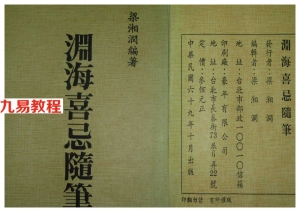 梁湘潤編著
淵海喜忌隨筆
九易教程
淵海喜忌隨筆
發行者：梁湘潤
編輯者：梁湘潤
地址：台北市郵政一〇〇一〇信箱
印刷廠：豪年有限公司
地址：台北市長春街73巷6弄22號
定價：參佰元正
中華民國六十九年十月出版